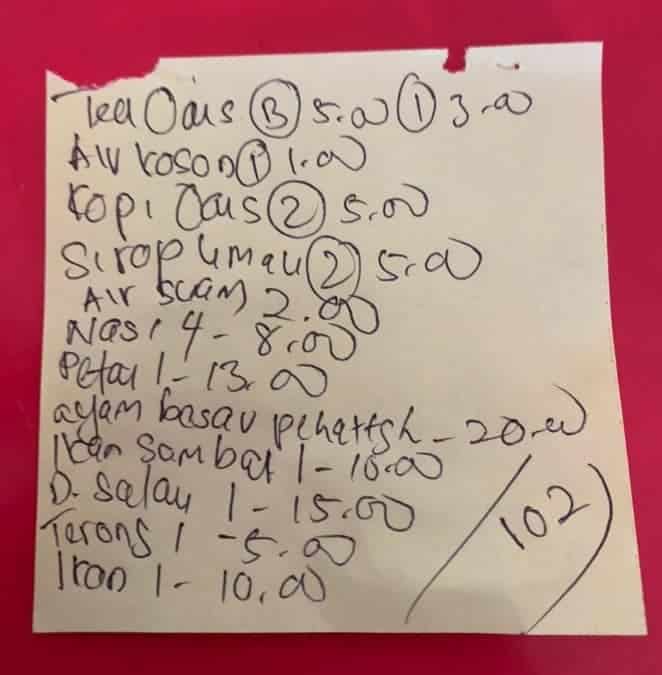 Tea Oais (B) 5.00 (1) 3.00
Air Koson (1) 1.00
Kopi Oais (2) 5.00
Sirop limau (2) 5.00
Air suam 2.00
Nasi 4 - 8.00
Petai 1 - 13.00
ayam besar - 20.00
Ikan Sambal 1 - 10.00
D. Salay 1 - 15.00
Terong 1 - 5.00
Ikan 1 - 10.00
102